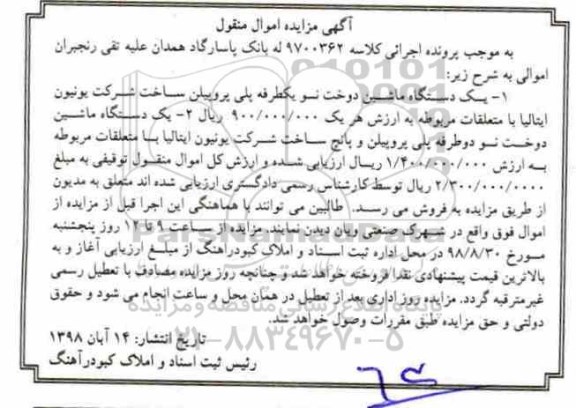 آگهی مزایده اموال منقول
به موجب پرونده اجرائی کلاسه ۹۷۰۰۳۶۲ له بانک پاسارگاد همدان علیه تقی رنجبران
اموالی به شرح زیر:
۱- یک دستگاه ماشین دوخت نسو یکطرفه پلی پروپیلن ساخت شرکت یونیون
ایتالیا با متعلقات مربوطه به ارزش هر یک ۹۰۰/۰۰۰/۰۰۰ ریال ۲- یک دستگاه ماشین
دوخت نسو دوطرفه پلی پروپیلن و پانچ ساخت شرکت یونیون ایتالیا با متعلقات مربوطه
به ارزش ۱/۴۰۰/۰۰۰/۰۰۰ ریال ارزیابی شده و ارزش کل اموال منقول توقیفی به مبلغ
۲/۳۰۰/۰۰۰/۰۰۰۰ ریال توسط کارشناس رسمی دادگستری ارزیابی شده اند متعلق به مدیون
از طریق مزایده به فروش می رسد. طالبین می توانند با هماهنگی این اجرا قبل از مزایده از
اموال فوق واقع در شهرک صنعتی ویان دیدن نمایند. مزایده از ساعت ۹ تا ۱۲ روز پنجشنبه
مورخ ۹۸/۸/۳۰ در محل اداره ثبت اسناد و املاک کبودراهنگ از مبلغ ارزیابی آغاز و به
بالاترین قیمت پیشنهادی نقدا فروخته خواهد شد و چنانچه روز مزایده مصادف با تعطیل رسمی
غیرمترقبه گردد. مزایده روز اداری بعد از تعطیل در همان محل و ساعت انجام می شود و حقوق
دولتی و حق مزایده طبق مقررات وصول خواهد شد.
تاریخ انتشار: ۱۴ آبان ۱۳۹۸
رئیس ثبت اسناد و املاک کبودرآهنگ
پایگاه اطلاع رسانی مناقصه و مزایده
۰۲۱-۸۸۳۴۹۶۷۰-۵